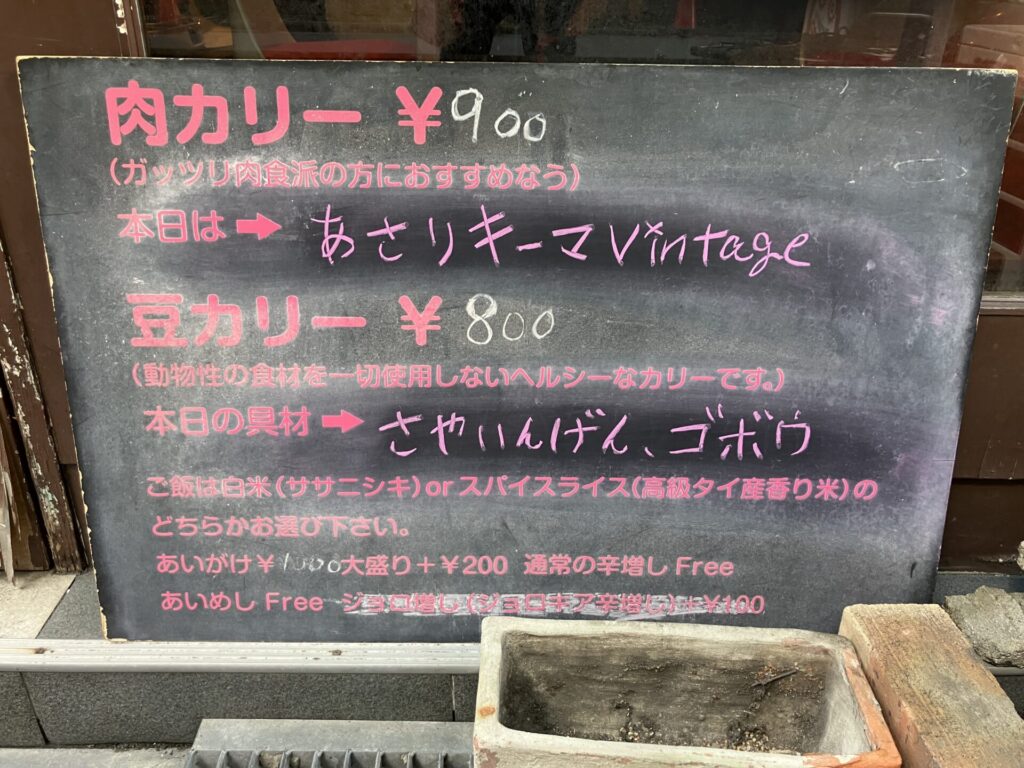 肉カリー ¥900
(ガッツリ肉食派の方におすすめなう)
本日は➡ あさりキーマVintage
豆カリー ¥800
(動物性の食材を一切使用しないヘルシーなカリーです。)
本日の具材➡ さやいんげん、ゴボウ
ご飯は白米(ササニシキ)orスパイスライス(高級タイ産香り米)の
どちらかお選び下さい。
あいがけ¥1000大盛り+¥200 通常の辛増し Free
あいめし Free ジョロ増し(ジョロキア辛増し)+¥100